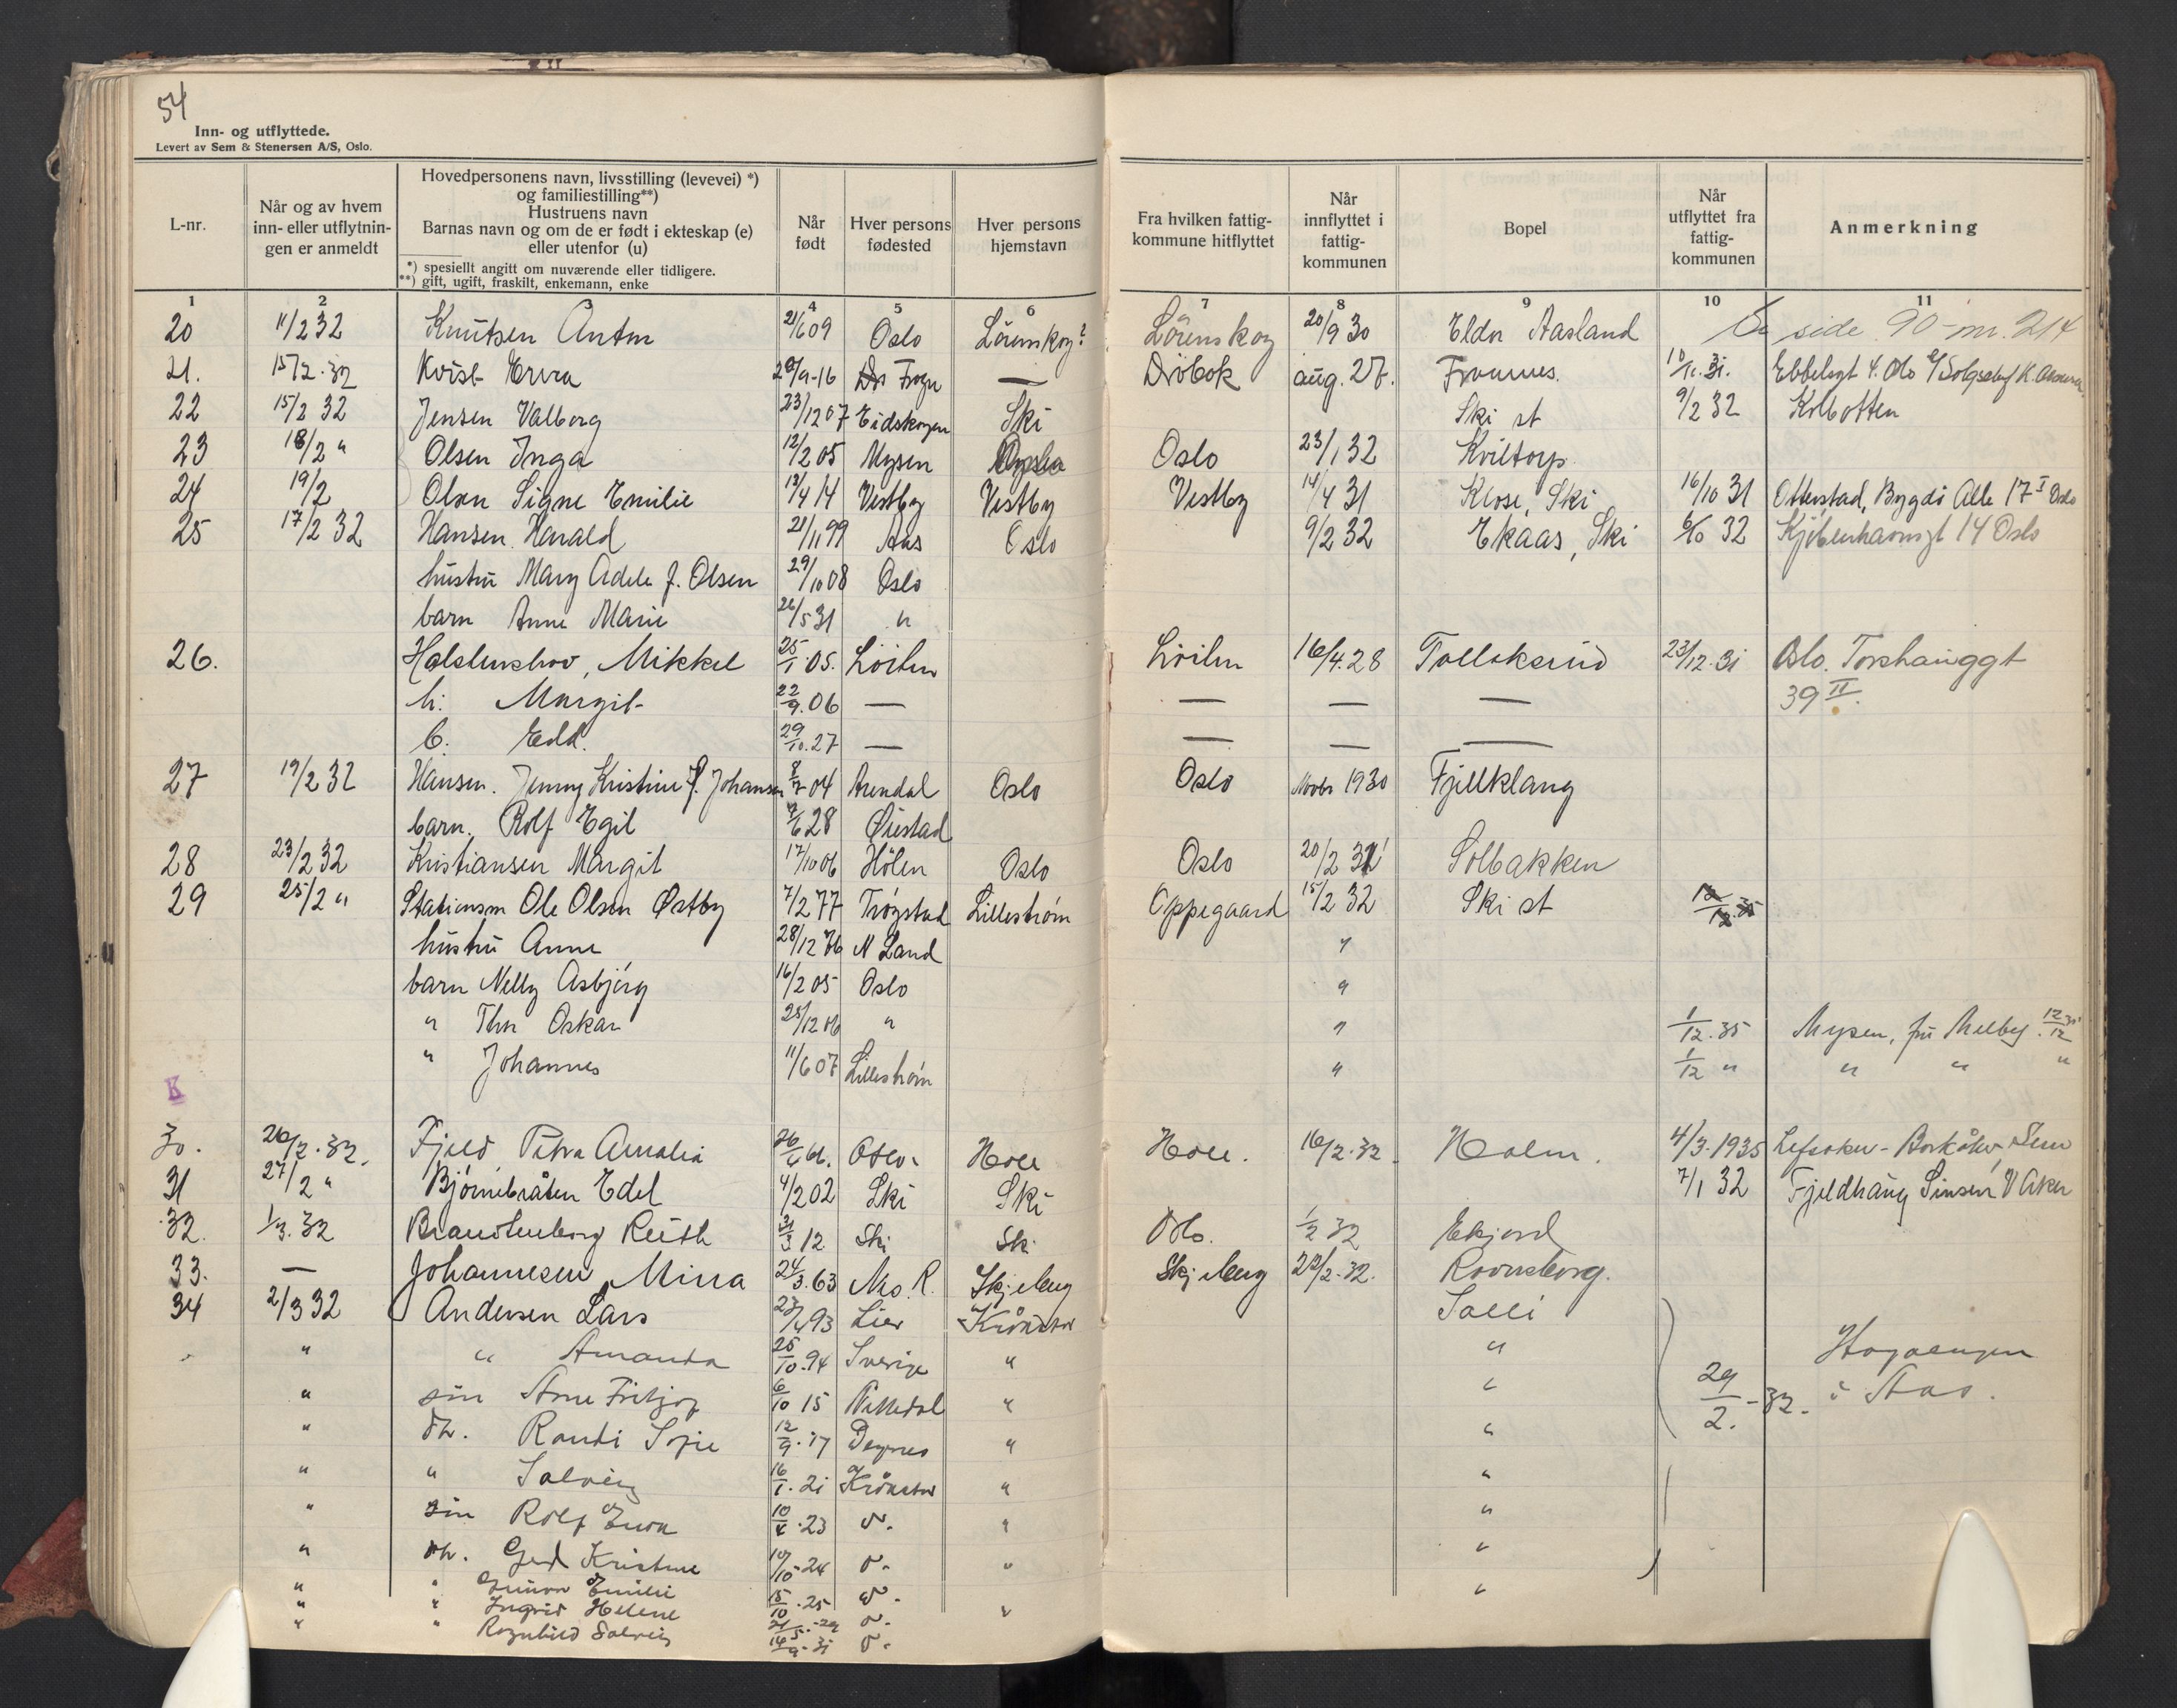 54
Inn- og utflyttede.
Levert av Sem & Stenersen A/S, Oslo.
L-nr.
Når og av hvem inn- eller utflytnin-gen er anmeldt
Hovedpersonens navn, livsstilling (levevei) *) og familiestilling**)
Hustruens navn
Barnas navn og om de er født i ekteskap (e) eller utenfor (u)
*) spesiellt angitt om nuværende eller tidligere.
**) gift, ugift, fraskilt, enkemann, enke
Når født
Hver persons fødested
Hver persons hjemstavn
Fra hvilken fattig-kommune hitflyttet
Når innflyttet i fattig-kommunen
Bopel
Når utflyttet fra fattig-kommunen
Anmerkning
1 2 3 4 5 6 7 8 9 10 11
20 11/2 32 Knutsen Anton 21/6 09 Oslo Lörenskog? Lörenskog 20/9 30 Eldor Aasland Se side 90 - nr. 214
21. 15/2.32 Kvist Erna /9-16 Frogn — Dröbak aug. 27. 10/11.31.
22 15/2 32 Jensen Valborg 23/12 07 Eidskogen Ski Ski st 9/2 32 Kolbotten
23 18/2 " Olsen Inga 12/2 05 Mysen Oslo 23/1 32 Kviltorp
24 19/2 Olsen Signe Emilie 13/4 14 Vestby Vestby Vestby 14/4 31 Klose, Ski 16/10 31 Otterstad, Bygdö Alle 17 I Oslo
25 17/2 32 Hansen Harald 21/11 99 Aas Oslo 9/2 32 Ekaas, Ski 32 Kjöbenhavnsgt 14 Oslo
hustru Mary Adele f. Olsen 29/10 08 Oslo
barn Anne Marie 26/5 31 "
26. Mikkel 25/1 05. Löiten Löiten 16/4.28 Tolleksrud 23/12.31 Oslo. Torshauggt
39 II.
h: Margit 22/9.06 — — — —
b. 29/10.27 — — — —
27 19/2 32 Hansen. Jenny Kristine f. Johansen 8/7 04 Arendal Oslo Oslo Novbr 1930 Fjellklang
barn. Rolf Egil 28 Øiestad
28 23/2 32 Kristiansen Margit 17/10 06 Hölen Oslo Oslo 20/2 Solbakken
29 25/2 " Stationsm Ole Olsen Østby 7/2 77 Trögstad Lilleström Oppegaard 15/2 32 Ski st 12/12 35
hustru Anne 28/12 76 N Land "
barn Nelly Asbjörg 16/2 05 Oslo "
" Thor Oskar 25/12 06 " " 1/12.35 Mysen, fru Melby. 12/12 35
" Johannes 11/6 07 Lilleström " 1/12 " " " "
K
30. 26/2.32. Fjeld Petra Amalia 26/4 66. Oslo. 16/2.32. Holm. 4/3.1935
31 27/2 " Bjørnebråten Edel 4/2 02 Ski Ski 7/1 32 Fjeldhaug Sinsen V Aker
32. 1/3.32 Brandtenborg Ruth 31/3 12 Ski Ski Oslo. 1/2 32 Ekjord
33. — Johannesen, Mina 24/3.63 Nes. R. Skjeberg Skjeberg 22/2.32. Ravnsborg.
34 2/3 32 Andersen Lars 93 Lier Kråkstad Solli
" " Amanda 25/10.94 Sverige " " Hagalengen
" sön Arne Fritjof 6/10 15 Nittedal " " 29/2.-32. i Aas.
" dtr. Randi Sofie 12/9.17 " "
" " Solveig 16/1.21 Kråkstad " "
" sön Rolf 10/4.23 " "
" dtr. Gerd Kristine 10/10-24 " "
" " Gunvor Emilie 15/10.25 "
" " Ingrid Helene 21/5.-29 "
" " Ragnhild Solveig 14/9-31